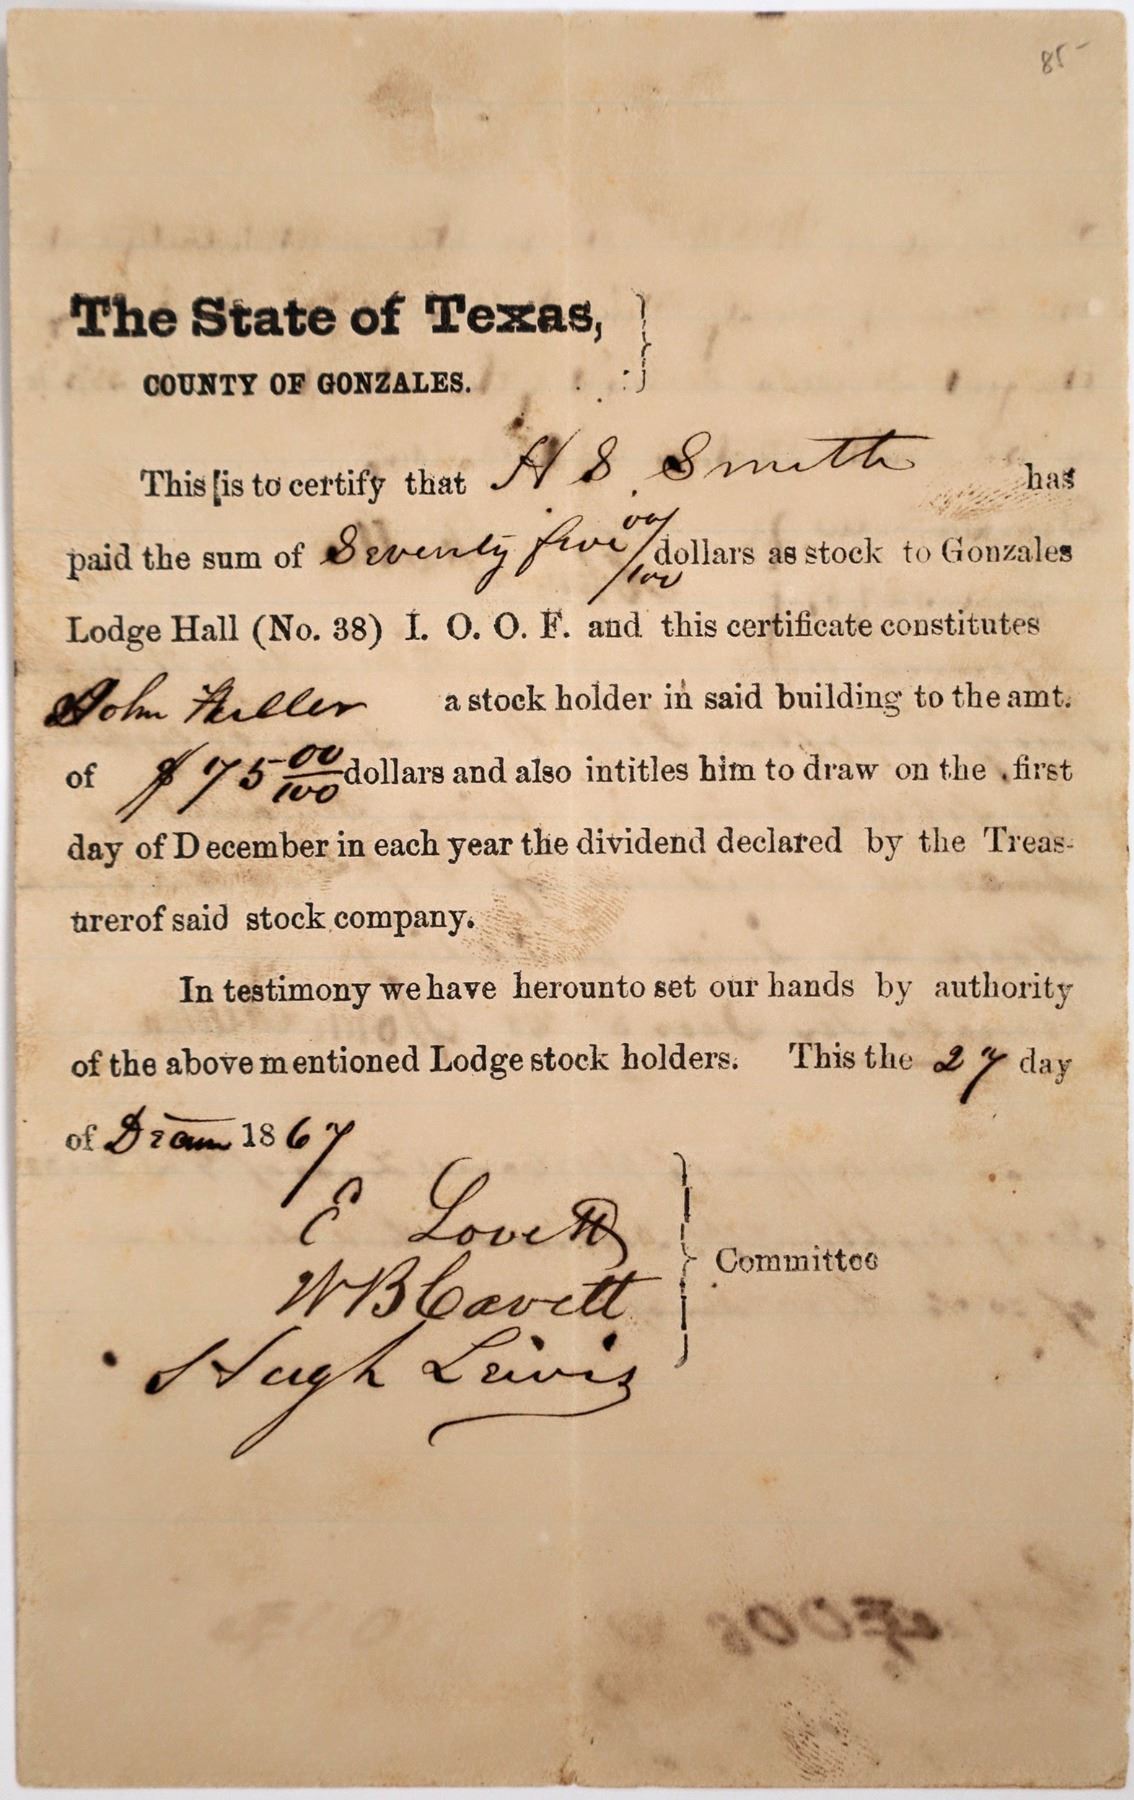 85-
The State of Texas,
COUNTY OF GONZALES.
This [is to certify that H S. Smith has
paid the sum of Seventy five 00/100 dollars as stock to Gonzales
Lodge Hall (No. 38) I. O. O. F. and this certificate constitutes
John Fuller a stock holder in said building to the amt.
of $75 00/100 dollars and also intitles him to draw on the .first
day of December in each year the dividend declared by the Treas-
urerof said stock company.
In testimony we have herounto set our hands by authority
of the above mentioned Lodge stock holders. This the 27 day
of 1867
E Lovett
W B Cavett
Committee
Hugh Lewis